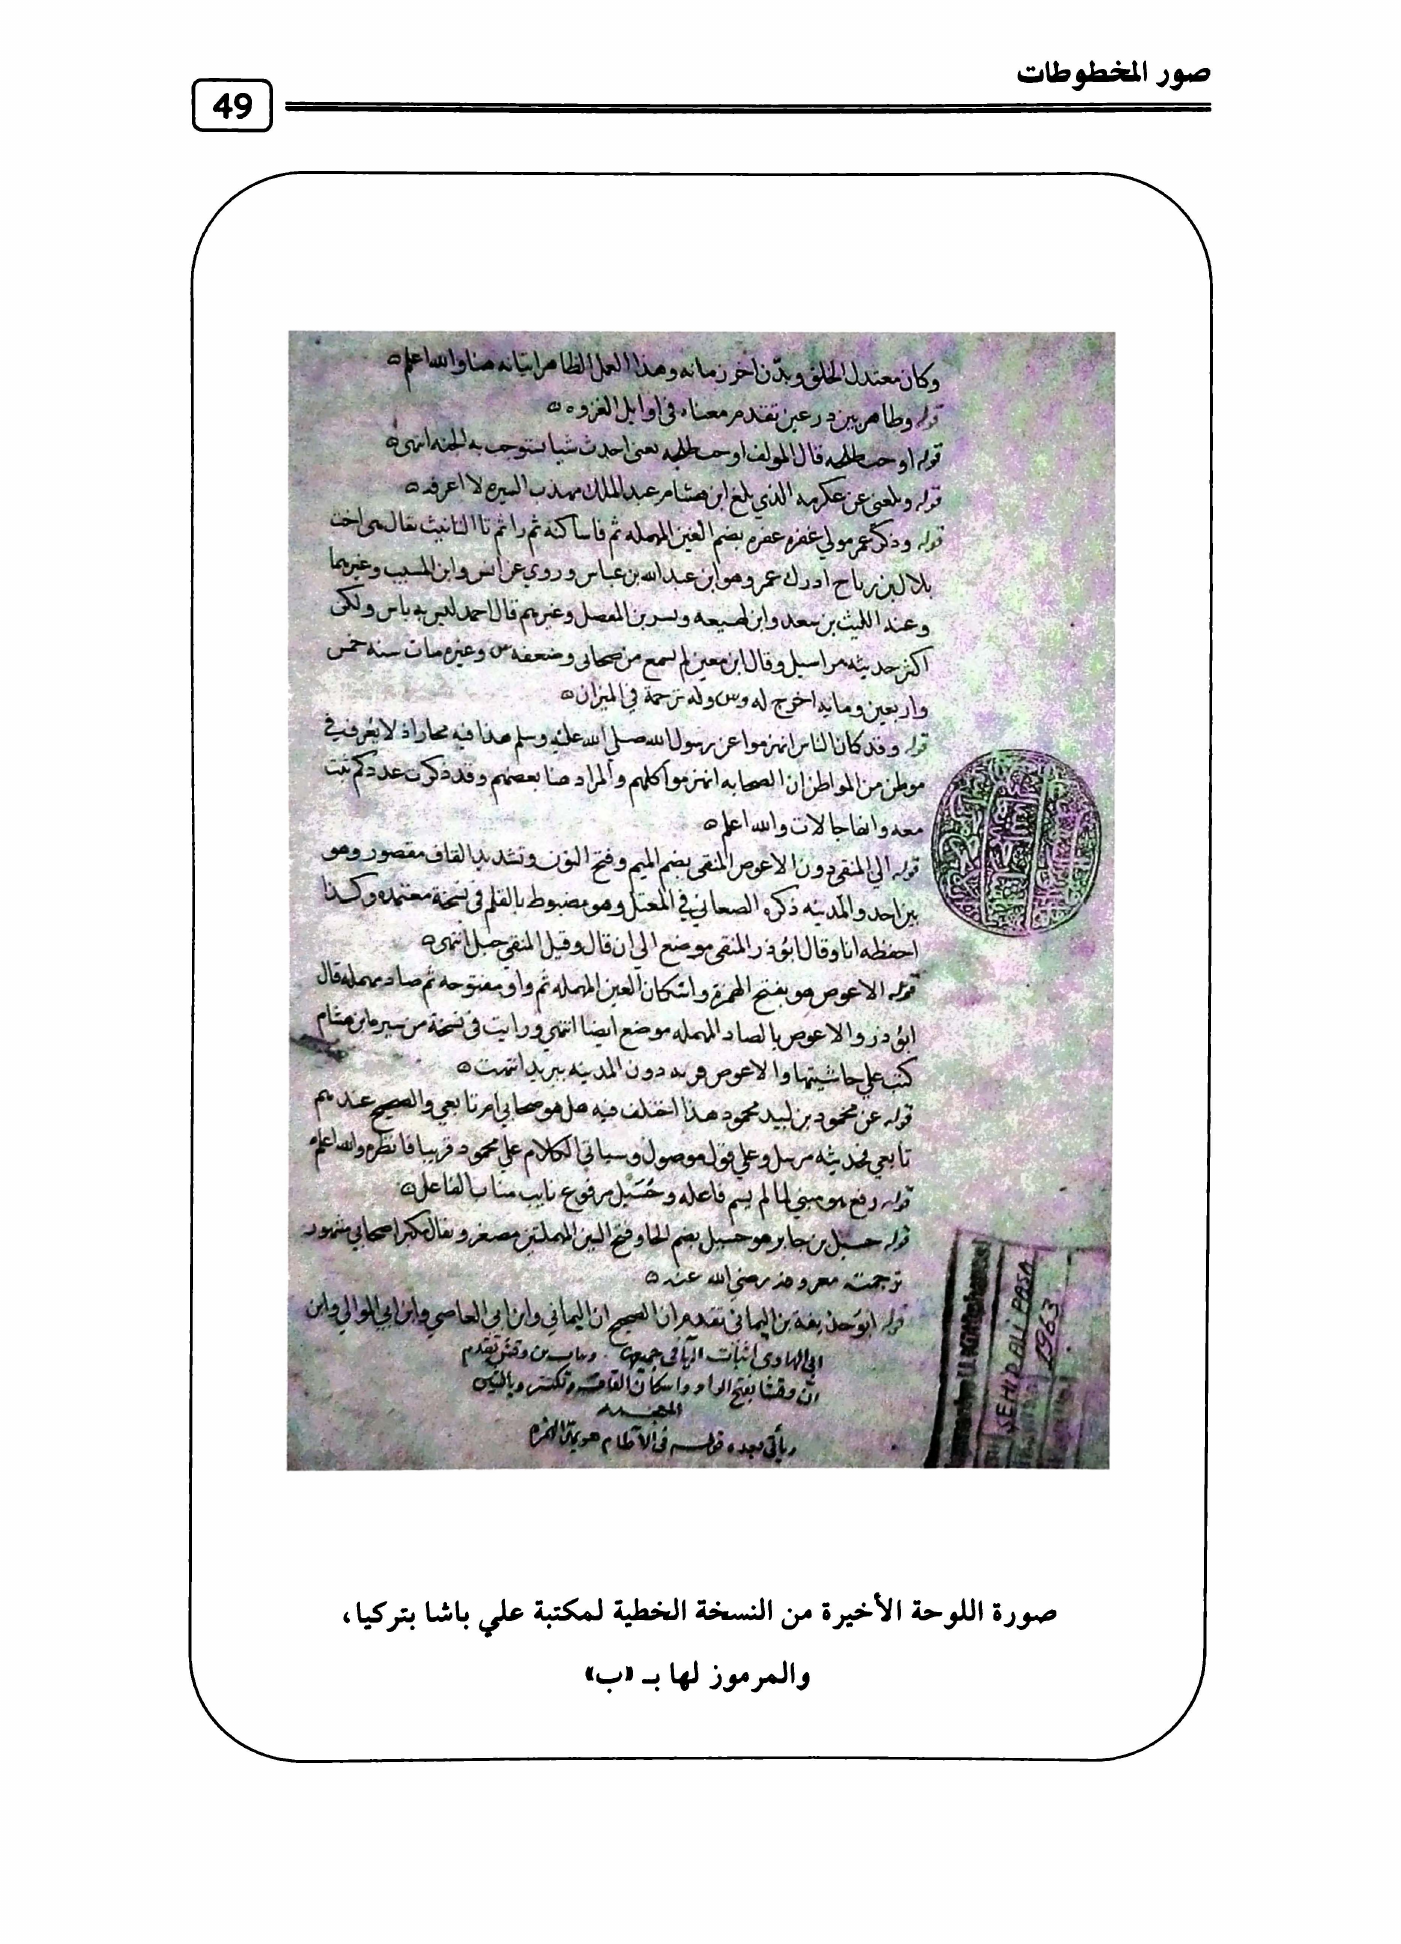 صور المخطوطات
49
وكان معتدل الخلق وبدّن اخر زمانه وهذا العل الظاهر اتيانه هنا والله اعلم
قوله وظاهر بين درعين تقدم معناه في اوايل الغزوه
قوله اوجب طلحه قال المولف اوجب طلحه يعني احدث شيا يستوجب به الجنه انتهى
قوله وبلغني عن عكرمه الذي بلغ ابن هشام عبد الملك مهذب السيره لا اعرفه
قوله وذكر عمر مولي غفره غفره بضم الغين المهمله ثم فا ساكنه ثم را ثم تا التانيث يقال هي اخت
بلال بن رباح ادرك عمر وهو ابن عبد الله بن عباس وروي عن انس وابن المسيب وغيرهما
وعنه الليث بن سعد وابن لهيعه وبسر بن المفضل وغيرهم قال احمد ليس به باس ولكن
اكثر حديثه مراسيل وقال ابن معين لم يسمع من صحابي وضعفه س وغيره مات سنه خمس
واربعين ومايه اخرج له وس وله ترجمة في الميزان
قوله وقد كان الناس انهزموا عن رسول الله صلى الله عليه وسلم هذا فيه مجاز اذ لا يعرف في
موطن من المواطن ان الصحابه انهزموا كلهم والمراد هنا بعضهم وقد ذكرت عدد كم ثبت
معه وانها حالات والله اعلم
قوله الي المنقى دون الاعوص المنقى بضم الميم وفتح النون وتشديد القاف مقصور وهو
بين احد والمدينه ذكره الصغاني في المعتل وهو مضبوط بالقلم في نسخة معتمده وكذا
احفظه انا وقال ابو ذر المنقى موضع الي ان قال وقيل المنقى جبل انتهى
قوله الاعوص هو بفتح الهمزة واسكان العين المهمله ثم واو مفتوحه ثم صاد مهمله قال
ابو ذر والاعوص بالصاد المهمله موضع ايضا انتهى ورايت في نسخة من سيره ابن هشام
كتب علي حاشيتها والاعوص قريه دون المدينه ببريد انتهت
قوله عن محمود بن لبيد محمود هذا اختلف فيه هل هو صحابي ام تابعي والصحيح عندهم
تابعي فحديثه مرسل وعلي قول موصول وسياتي الكلام علي محمود قريبا فانظره والله اعلم
قوله رفع هو مبني لما لم يسم فاعله وحُسَيْل مرفوع نايب مناب الفاعل
قوله حسيل بن جابر هو حسيل بضم الحا وفتح السين المهملتين مصغر ويقال مكبرا صحابي مشهور
ترجمته معروفه رضي الله عنه
قوله ابو حذيفة بن اليماني تقدم ان الصحيح ان اليماني وابن ابي العاصي وابن ابي الموالي وابن
ابي الهادي اثبات اليا في جميعها وثابت بن وقش تقدم
ان وقشا بفتح الواو واسكان القاف وتكسر وبالشين
المعجمه
ويأتي بعده قوله في الآطام هو بمد الهمزه
SEHID ALI PASA
1963
صورة اللوحة الأخيرة من النسخة الخطية لمكتبة علي باشا بتركيا،
والمرموز لها بـ «ب»